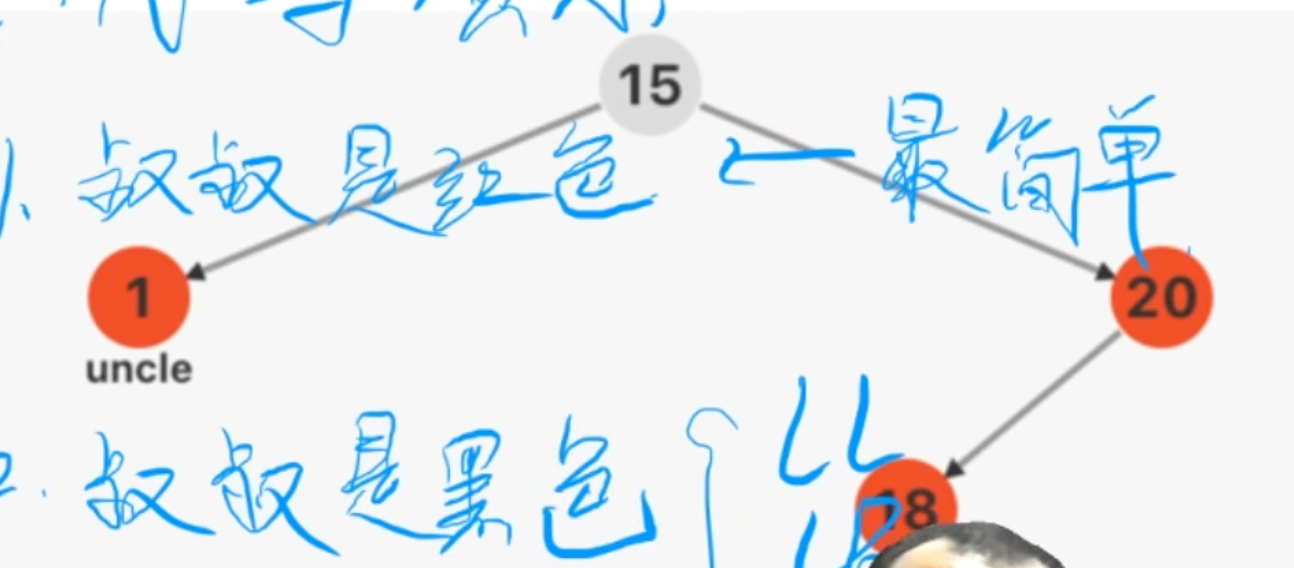 15
1、叔叔是红色 ← 最简单
1
20
uncle
2.叔叔是黑色 { LL
18